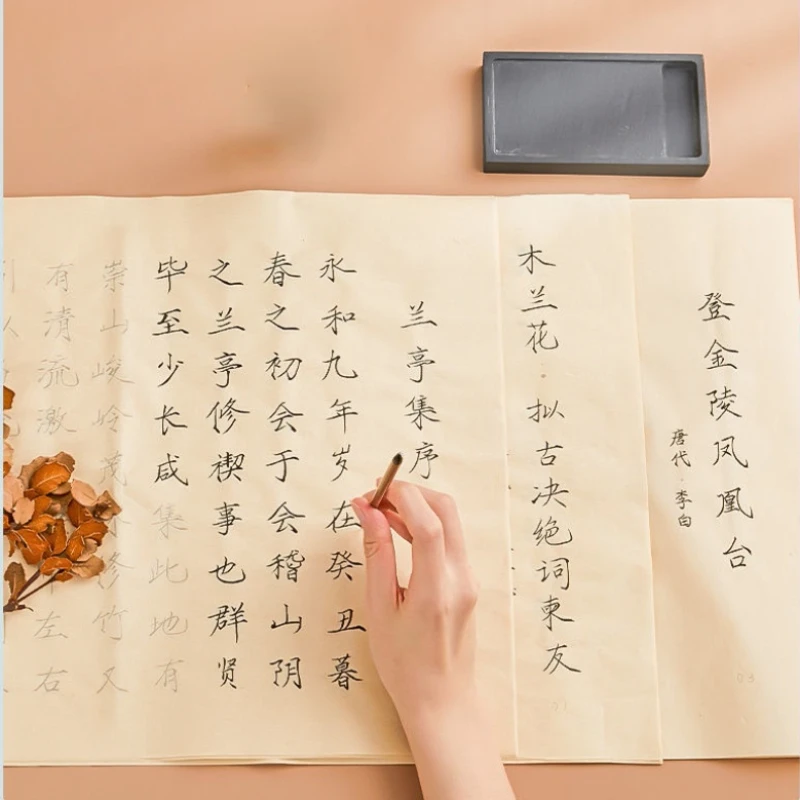 登金陵凤凰台
唐代·李白
03
木兰花·拟古决绝词柬友
兰亭集序
永和九年岁在癸丑暮
春之初会于会稽山阴
之兰亭修禊事也群贤
毕至少长咸集此地有
崇山峻岭茂林修竹又
有清流激左右